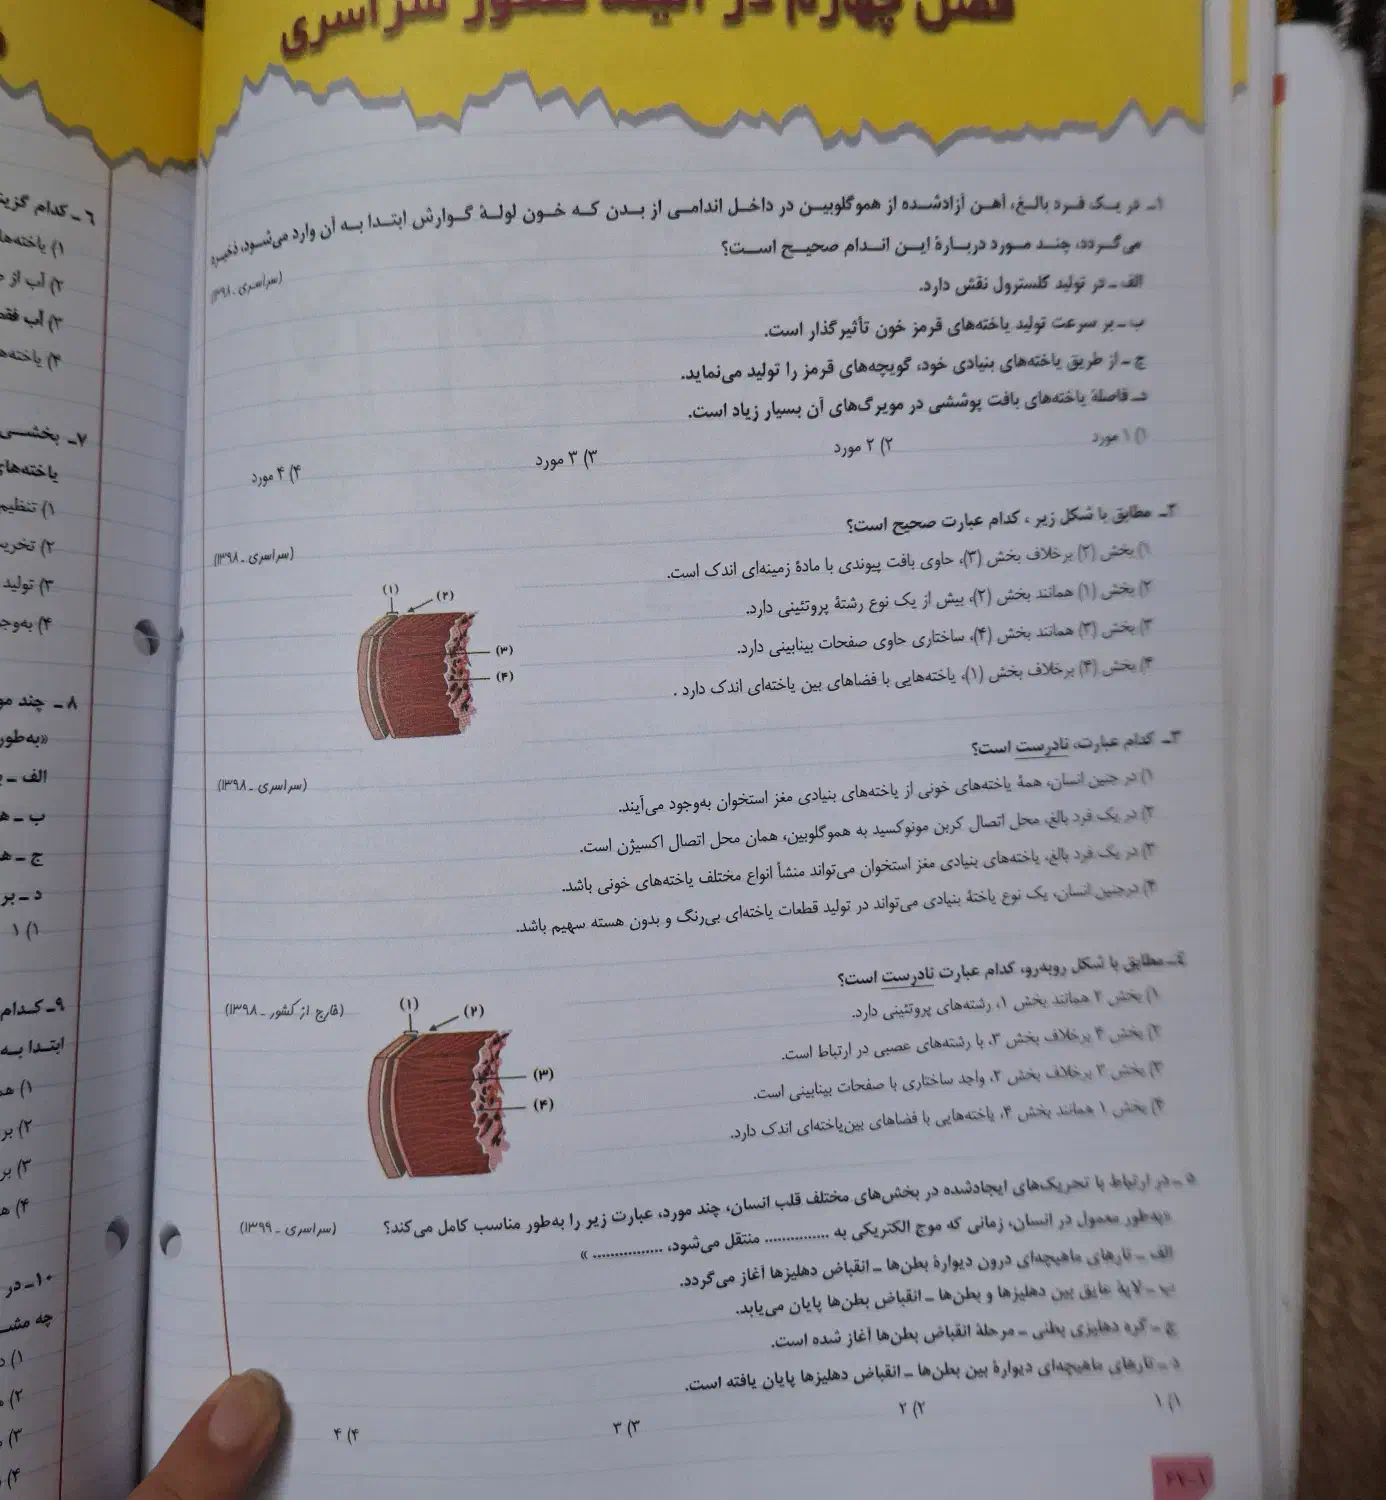 فصل چهارم در آئینه کنکور سراسری
۱ـ در یـک فـرد بالـغ، آهـن آزادشـده از هموگلوبیـن در داخـل اندامـی از بـدن کـه خـون لولـهٔ گـوارش ابتـدا بـه آن وارد می‌شـود، ذخیـره
می‌گـردد، چنـد مـورد دربـارهٔ ایـن انـدام صحیـح اسـت؟
(سراسری ـ ۱۳۹۸)
الف ـ در تولید کلسترول نقش دارد.
ب ـ بر سرعت تولید یاخته‌های قرمز خون تأثیرگذار است.
ج ـ از طریق یاخته‌های بنیادی خود، گویچه‌های قرمز را تولید می‌نماید.
د ـ فاصلهٔ یاخته‌های بافت پوششی در مویرگ‌های آن بسیار زیاد است.
۱) ۱ مورد ۲) ۲ مورد ۳) ۳ مورد ۴) ۴ مورد
۲ـ مطابق با شکل زیر ، کدام عبارت صحیح است؟ (سراسری ـ ۱۳۹۸)
۱) بخش (۲) برخلاف بخش (۳)، حاوی بافت پیوندی با مادهٔ زمینه‌ای اندک است.
۲) بخش (۱) همانند بخش (۲)، بیش از یک نوع رشتهٔ پروتئینی دارد.
۳) بخش (۳) همانند بخش (۴)، ساختاری حاوی صفحات بینابینی دارد.
۴) بخش (۴) برخلاف بخش (۱)، یاخته‌هایی با فضاهای بین یاخته‌ای اندک دارد .
(۱)
(۲)
(۳)
(۴)
۳ـ کدام عبارت، نادرست است؟ (سراسری ـ ۱۳۹۸)
۱) در جنین انسان، همهٔ یاخته‌های خونی از یاخته‌های بنیادی مغز استخوان به‌وجود می‌آیند.
۲) در یک فرد بالغ، محل اتصال کربن مونوکسید به هموگلوبین، همان محل اتصال اکسیژن است.
۳) در یک فرد بالغ، یاخته‌های بنیادی مغز استخوان می‌تواند منشأ انواع مختلف یاخته‌های خونی باشد.
۴) درجنین انسان، یک نوع یاختهٔ بنیادی می‌تواند در تولید قطعات یاخته‌ای بی‌رنگ و بدون هسته سهیم باشد.
۴ـ مطابق با شکل روبه‌رو، کدام عبارت نادرست است؟ (خارج از کشور ـ ۱۳۹۸)
۱) بخش ۲ همانند بخش ۱، رشته‌های پروتئینی دارد.
۲) بخش ۴ برخلاف بخش ۳، با رشته‌های عصبی در ارتباط است.
۳) بخش ۳ برخلاف بخش ۲، واجد ساختاری با صفحات بینابینی است.
۴) بخش ۱ همانند بخش ۴، یاخته‌هایی با فضاهای بین‌یاخته‌ای اندک دارد.
(۱)
(۲)
(۳)
(۴)
۵ ـ در ارتباط با تحریک‌های ایجادشده در بخش‌های مختلف قلب انسان، چند مورد، عبارت زیر را به‌طور مناسب کامل می‌کند؟ (سراسری ـ ۱۳۹۹)
«به‌طور معمول در انسان، زمانی که موج الکتریکی به ............... منتقل می‌شود، ............... »
الف ـ تارهای ماهیچه‌ای درون دیوارهٔ بطن‌ها ـ انقباض دهلیزها آغاز می‌گردد.
ب ـ لایهٔ عایق بین دهلیزها و بطن‌ها ـ انقباض بطن‌ها پایان می‌یابد.
ج ـ گره دهلیزی بطنی ـ مرحلهٔ انقباض بطن‌ها آغاز شده است.
د ـ تارهای ماهیچه‌ای دیوارهٔ بین بطن‌ها ـ انقباض دهلیزها پایان یافته است.
۱) ۱ ۲) ۲ ۳) ۳ ۴) ۴
۶ ـ کدام
۱) یاخته‌ها
۲) آب از
۳) آب فقط
۴) یاخته‌ها
۷ـ بخشـی
یاخته‌های
۱) تنظیم
۲)
۳) تولید
۴)
۸ ـ چند
«به‌طور
الف ـ
ب ـ
ج ـ
د ـ بر
۱) ۱
۹ـ کـدام
ابتـدا بـه
۱)
۲)
۳)
۴)
۱۰ـ در
چه
۱)
۲)
۳)
۴)